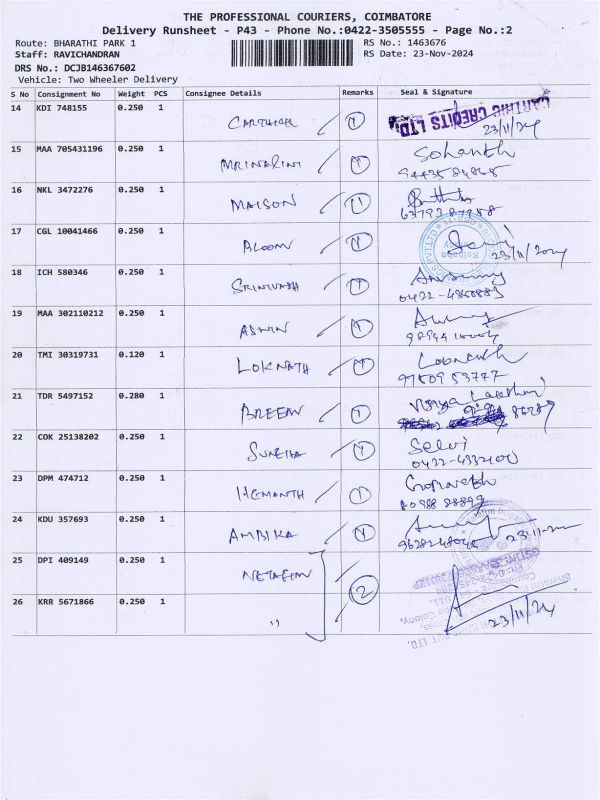 THE PROFESSIONAL COURIERS, COIMBATORE
Delivery Runsheet - P43 - Phone No.:0422-3505555 - Page No.:2
Route: BHARATHI PARK 1
RS No.: 1463676
Staff: RAVICHANDRAN
RS Date: 23-Nov-2024
DRS No.: DCJB146367602
Vehicle: Two Wheeler Delivery
S No Consignment No Weight PCS Consignee Details Remarks Seal & Signature
14 KDI 748155 0.250 1 1 CREDITS LTD. 23/11/24
15 MAA 705431196 0.250 1 MRINALINI 1
16 NKL 3472276 0.250 1 MAISON 1
17 CGL 10041466 0.250 1 BLOOM 1 23/11/2024
18 ICH 580346 0.250 1 SRINIVASH 1
19 MAA 302110212 0.250 1 ASWIN 1
20 TMI 30319731 0.120 1 LOKNATH 1 97509 59777
21 TDR 5497152 0.280 1 BREEAN 1
22 COK 25138202 0.250 1 1 Selvi
0422-4332100
23 DPM 474712 0.250 1 HEMANTH 1
24 KDU 357693 0.250 1 AMBIKA 1
25 DPI 409149 0.250 1 NETAFIM 2
26 KRR 5671866 0.250 1 " 23/11/24